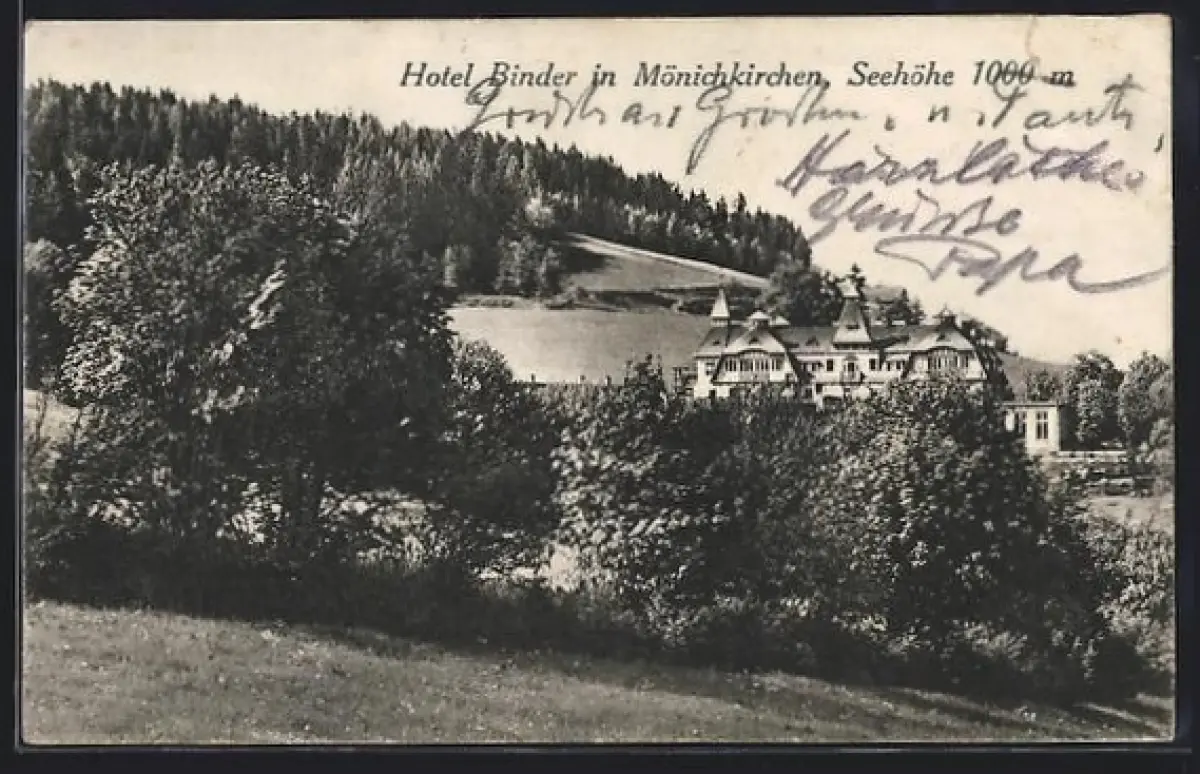 Hotel Binder in Mönichkirchen, Seehöhe 1000 m
Gruß an Großm. u. Tante
Herzlichste
Grüße
Papa